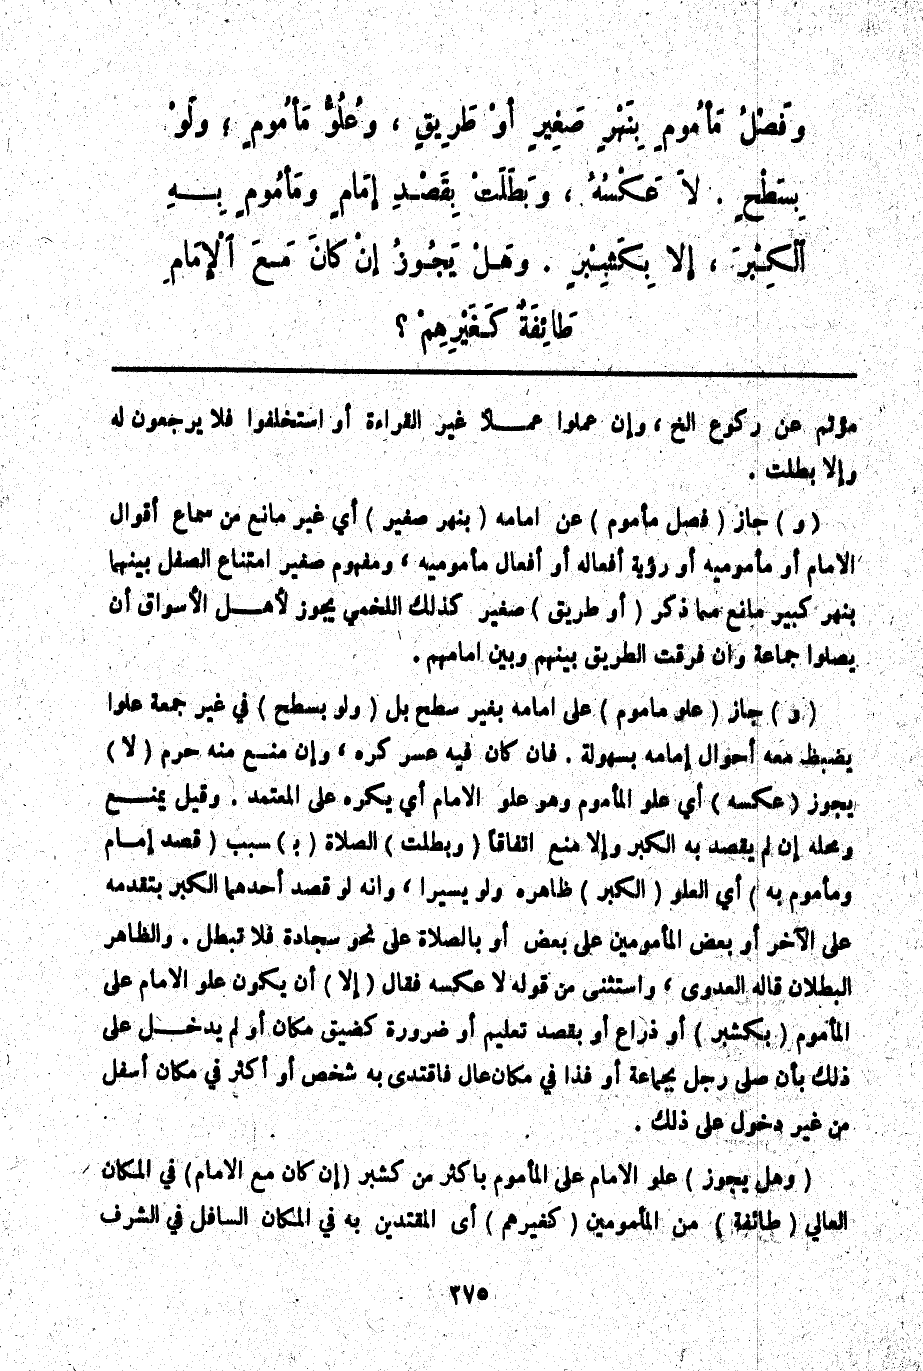 وَفَصْلُ مَأْمُومٍ بِنَهْرٍ صَغِيرٍ أَوْ طَرِيقٍ ، وَعُلُوُّ مَأْمُومٍ ؛ ولَوْ
بِسَطْحٍ . لاَ عَكْسُهُ ، وَبَطَلَتْ بِقَصْدِ إِمَامٍ ومَأْمُومٍ بِهِ
اَلْكِبْرَ ، إلا بِكَشِبْرٍ . وهَلْ يَجُوزُ إنْ كانَ مَعَ اَلْإمَامِ
طَائِفَةٌ كَغَيْرِهِمْ ؟
مؤتم عن ركوع الخ ، وإن عملوا عملاً غير القراءة أو استخلفوا فلا يرجعون له
وإلا بطلت .
( و ) جاز ( فصل مأموم ) عن امامه ( بنهر صغير ) أي غير مانع من سماع أقوال
الامام أو مأموميه أو رؤية أفعاله أو أفعال مأموميه ، ومفهوم صغير امتناع الصفل بينهما
بنهر كبير مانع مما ذكر ( أو طريق ) صغير كذلك اللخمي يجوز لأهل الأسواق أن
يصلوا جماعة وان فرقت الطريق بينهم وبين امامهم .
( و ) جاز ( علو ماموم ) على امامه بغير سطح بل ( ولو بسطح ) في غير جمعة علوا
يضبط معه أحوال إمامه بسهولة . فان كان فيه عسر كره ، وإن منع منه حرم ( لا )
يجوز ( عكسه ) أي علو المأموم وهو علو الامام أي يكره على المعتمد . وقيل يمنع
ومحله إن لم يقصد به الكبر وإلا منع اتفاقاً ( وبطلت ) الصلاة ( بـ ) سبب ( قصد إمام
ومأموم به ) أي العلو ( الكبر ) ظاهره ولو يسيرا ، وانه لو قصد أحدهما الكبر بتقدمه
على الآخر أو بعض المأمومين على بعض أو بالصلاة على نحو سجادة فلا تبطل . والظاهر
البطلان قاله العدوى ، واستثنى من قوله لا عكسه فقال ( إلا ) أن يكون علو الامام على
المأموم ( بكشبر ) أو ذراع أو بقصد تعليم أو ضرورة كضيق مكان أو لم يدخل على
ذلك بأن صلى رجل بجماعة أو فذا في مكان عال فاقتدى به شخص أو أكثر في مكان أسفل
من غير دخول على ذلك .
( وهل يجوز ) علو الامام على المأموم باكثر من كشبر (إن كان مع الامام) في المكان
العالي ( طائفة ) من المأمومين ( كغيرهم ) أى المقتدين به في المكان السافل في الشرف
٣٧٥